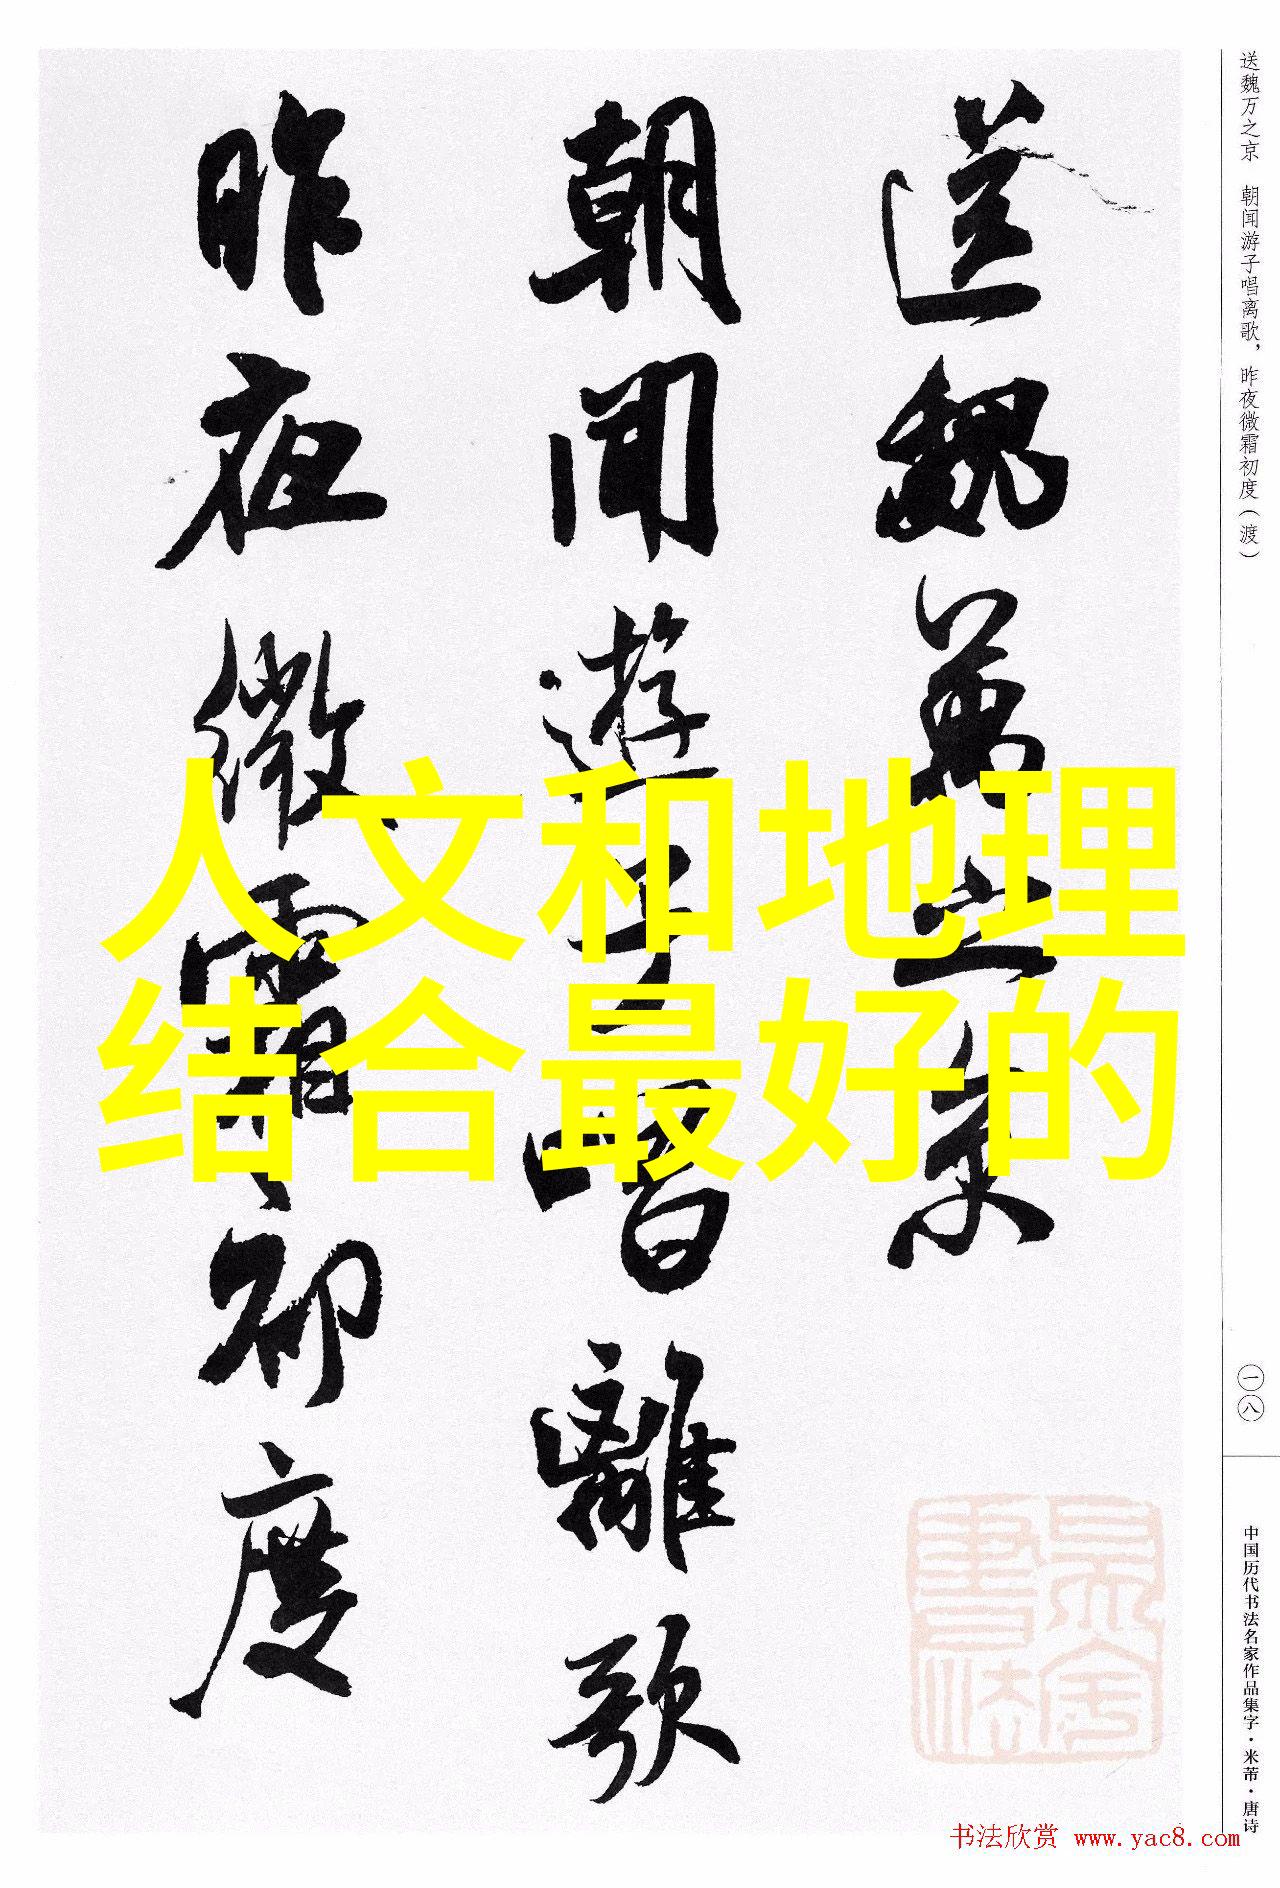 送魏萬之京
朝聞遊子唱離歌
昨夜微霜初度
人文和地理
结合最好的
送魏万之京　朝闻游子唱离歌，昨夜微霜初度（渡）
一八
中国历代书法名家作品集字·米芾·唐诗
书法欣赏 www.yac8.com